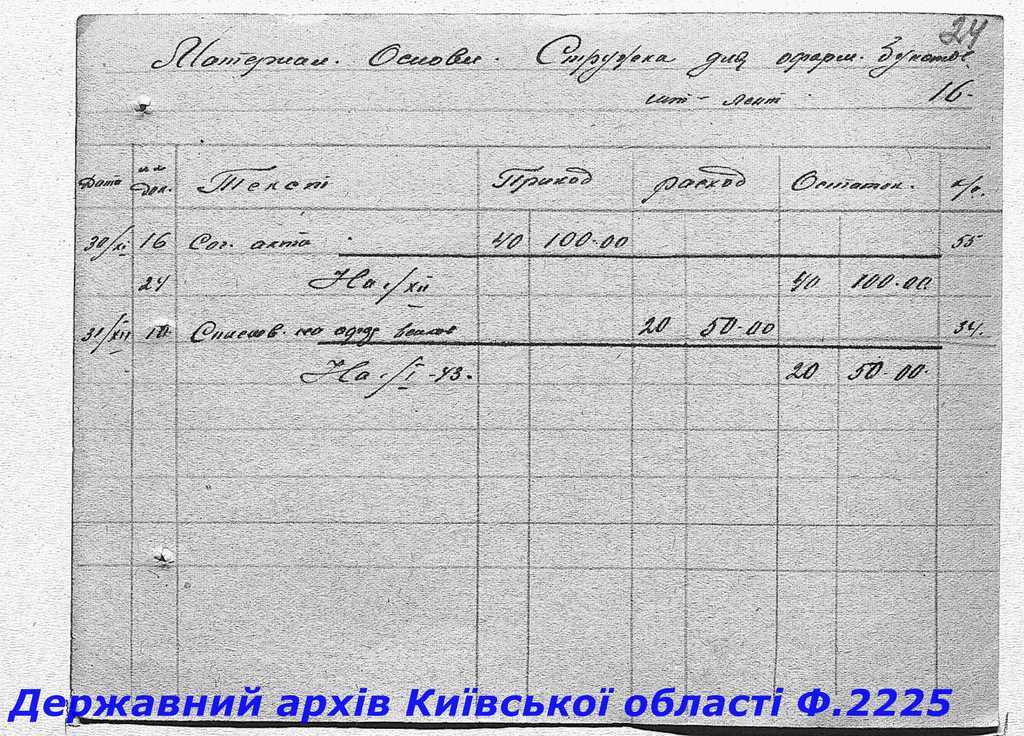 24
Материал. Основн. Стружка для оформ. букетов.
шт - лент 16-
Дата №№ док. Текст Приход расход Остаток. к/с.
30/XI 16 Сог. акта 40 100-00 55
24 На 1/XII 40 100-00
31/XII 10 Списов. на 20 50-00 34.
На 1/I -43. 20 50-00.
Державний архів Київської області Ф.2225